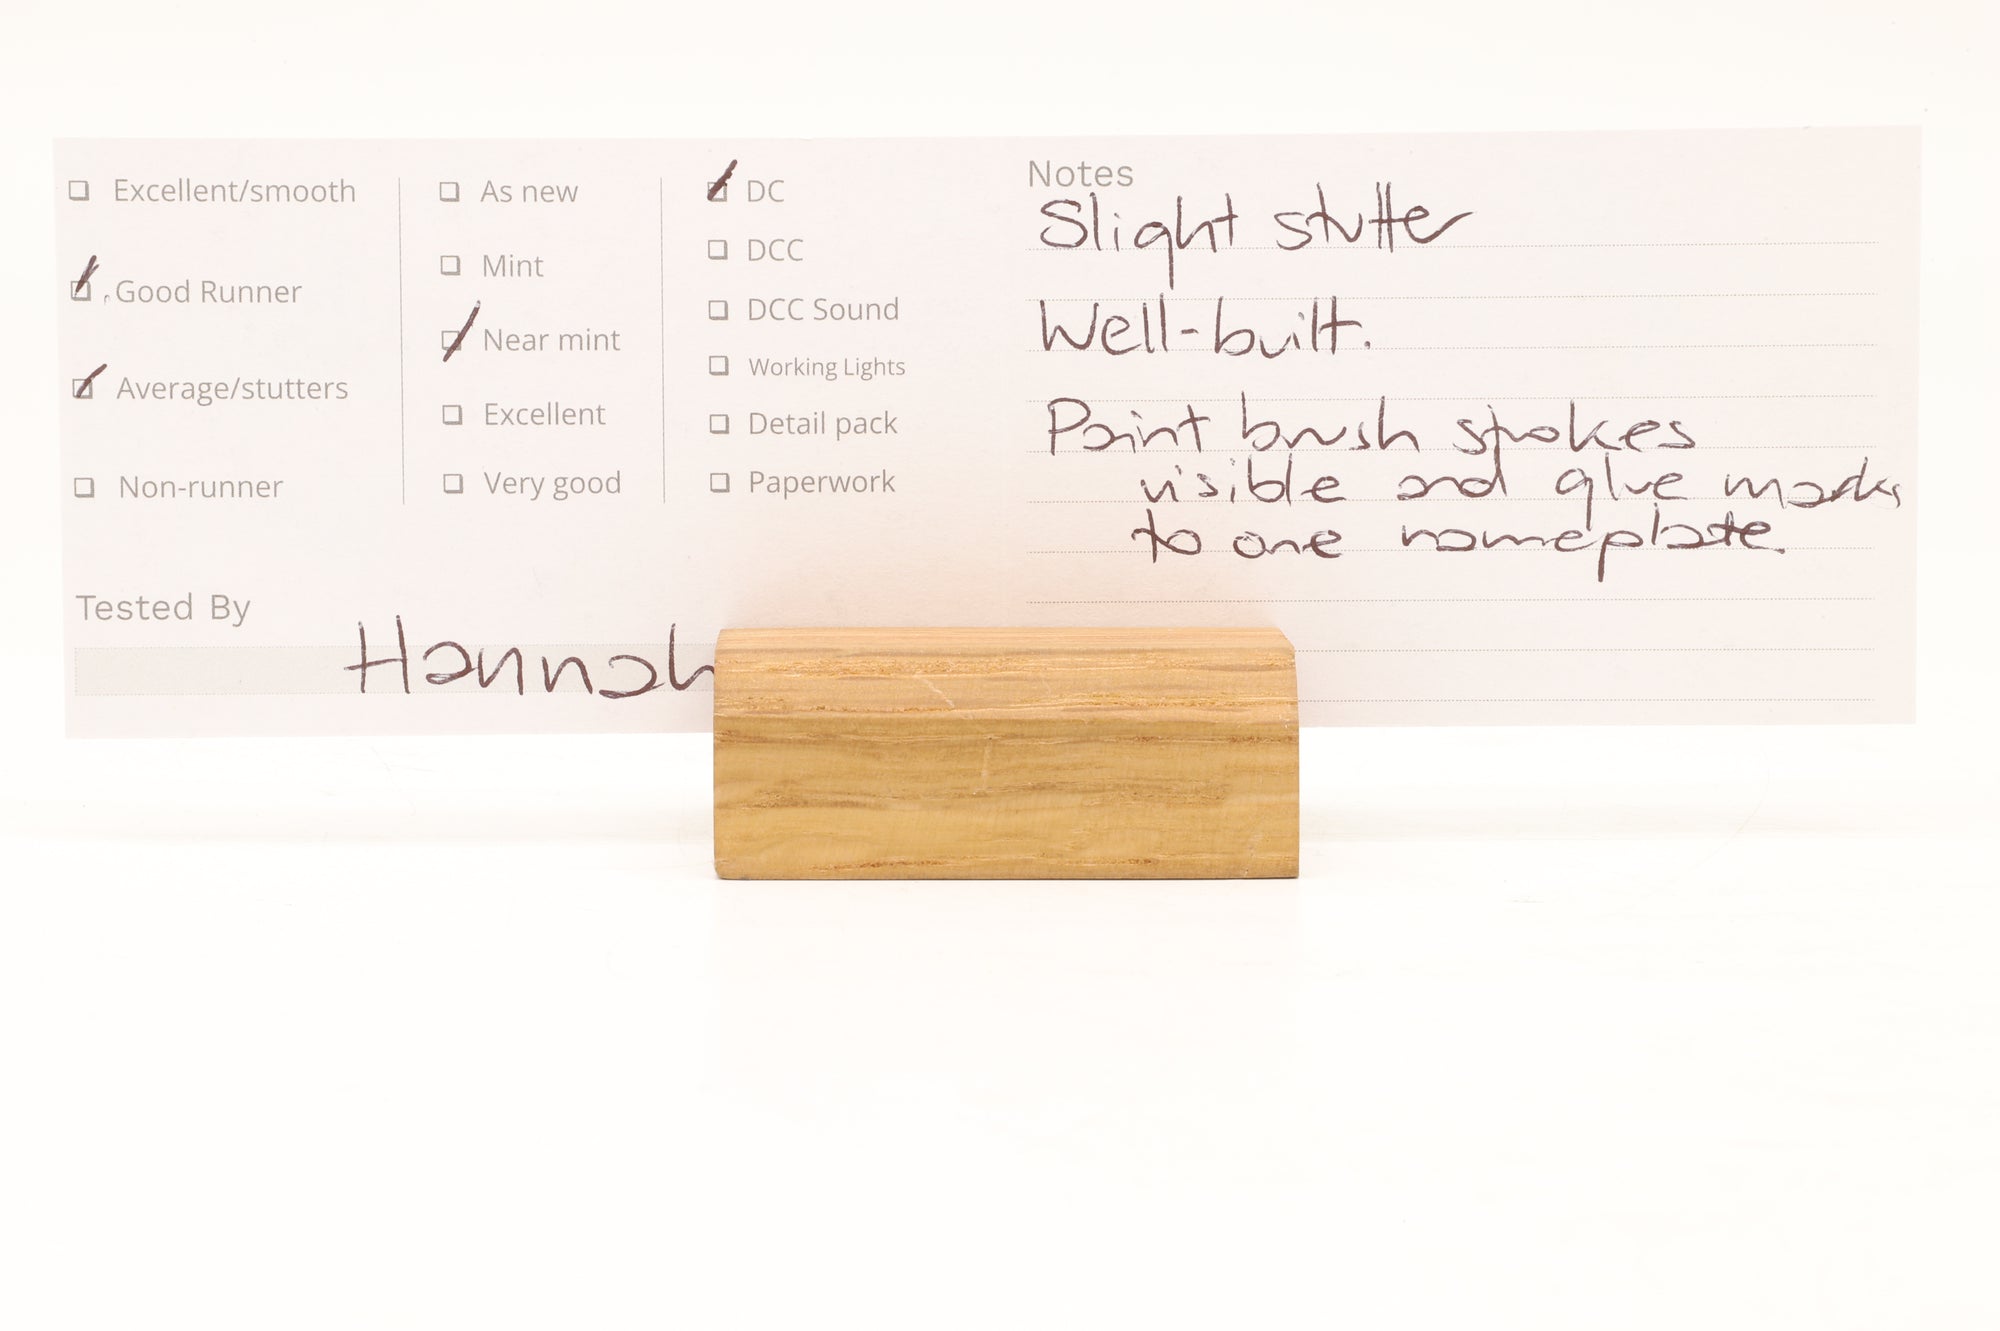 Excellent/smooth
Good Runner
Average/stutters
Non-runner
As new
Mint
Near mint
Excellent
Very good
DC
DCC
DCC Sound
Working Lights
Detail pack
Paperwork
Tested By
Hannah
Notes
Slight stutter
Well-built.
Paint brush strokes
visible and glue marks
to one nameplate.